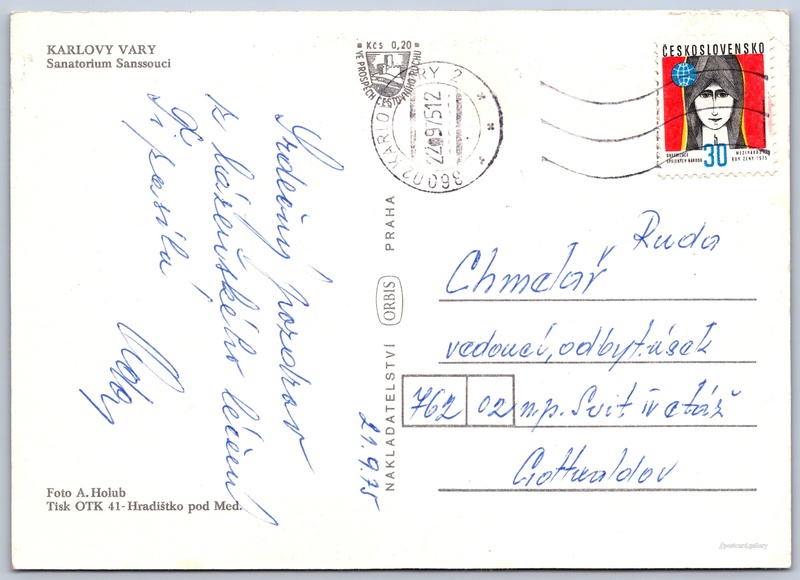 KARLOVY VARY
Sanatorium Sanssouci
Srdečný pozdrav
z lázeňského léčení
Foto A. Holub
Tisk OTK 41-Hradištko pod Med.
21.9.75
NAKLADATELSTVÍ ORBIS PRAHA
Kčs 0,20
VE PROSPĚCH CESTOVNÍHO RUCHU
KARLOVY VARY 2
22.9.75-12
360 02
ČESKOSLOVENSKO
ORGANIZACE
SPOJENÝCH NÁRODŮ
30
h
MEZINÁRODNÍ
ROK ŽENY 1975
Ruda
Chmelař
vedoucí, odbyt. úsek
762 02 n.p. Svit IV etáž
Gottwaldov
//postcard.gallery